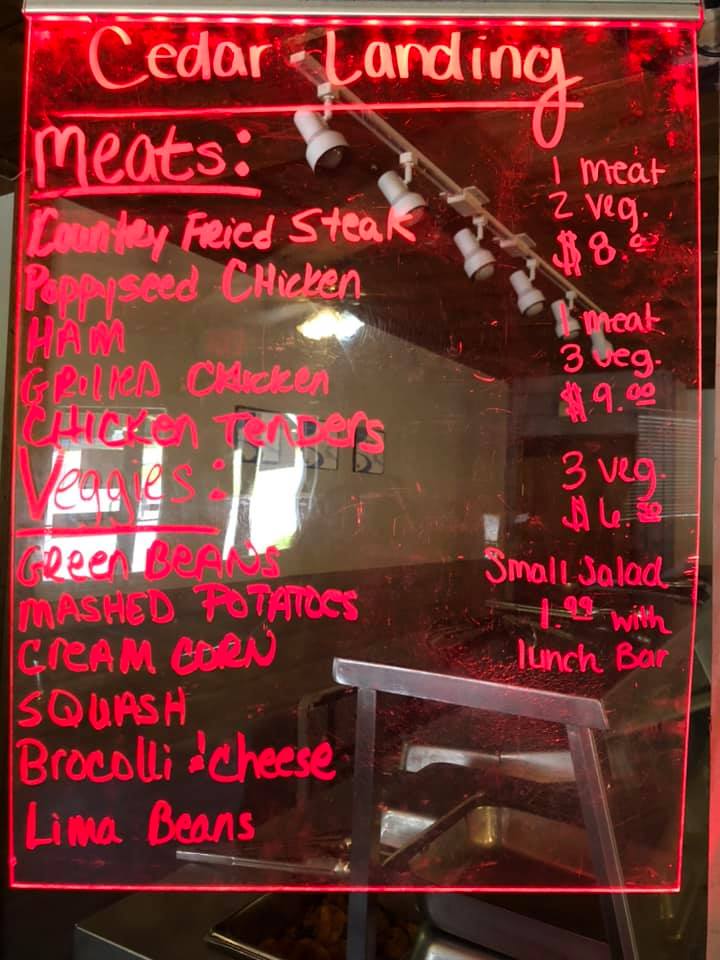 Cedar Landing
Meats:
Country Fried Steak
Poppyseed CHicken
HAM
GRILLED CHicken
CHICKen TenDeRS
Veggies:
GReen BEANS
MASHED POTATOES
CREAM CORN
SQUASH
Brocolli & Cheese
Lima Beans
1 meat
2 veg.
$8.00
1 meat
3 veg.
$9.00
3 veg.
$6.50
Small Salad
1.99 with
lunch Bar